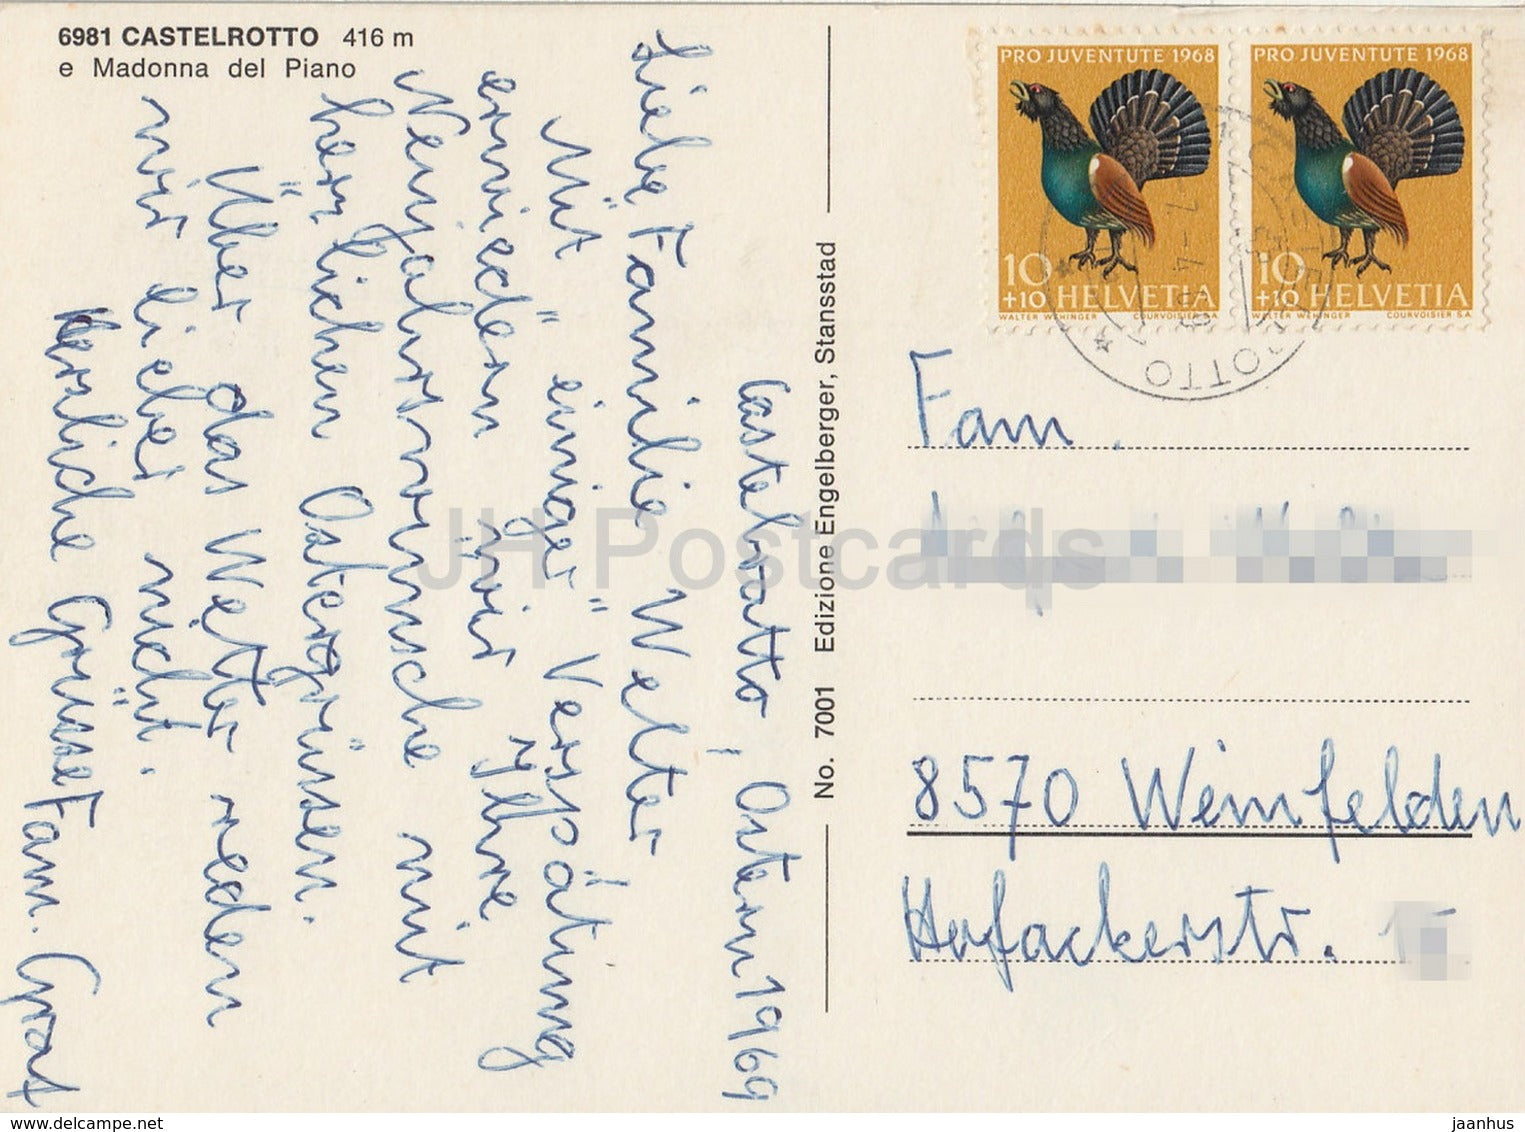 6981 CASTELROTTO 416 m
e Madonna del Piano
Castelrotto, Ostern 1969
Liebe Familie Welter,
Mit "einiger" Verspätung
erwiedern wir Ihre
Neujahrswünsche mit
herzlichen Ostergrüssen.
Über das Wetter reden
wir lieber nicht.
Herzliche Grüsse Fam. Graf
No. 7001 Edizione Engelberger, Stansstad
PRO JUVENTUTE 1968
10
+10 HELVETIA
WALTER WEHINGER COURVOISIER S.A.
PRO JUVENTUTE 1968
10
+10 HELVETIA
WALTER WEHINGER COURVOISIER S.A.
Fam.
8570 Weinfelden
Hofackerstr.
JH Postcards
jaanhus @ delcampe.net